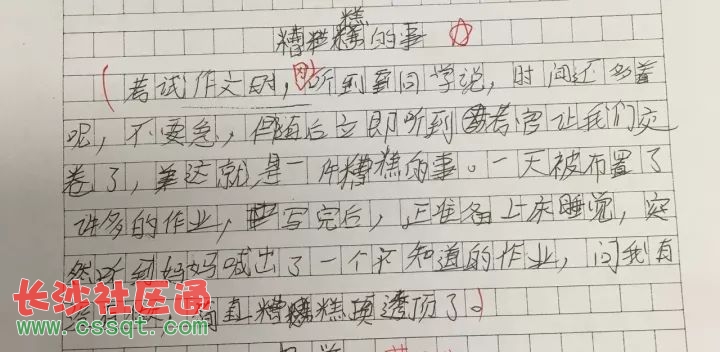 糟糕的事
考试作文时,听到同学说,时间还多着
呢,不要急,但随后立即听到考官让我们交
卷了,这就是一件糟糕的事。一天被布置了
许多的作业,写完后,正准备上床睡觉,突
然听到妈妈喊出了一个不知道的作业,问我有
简直糟糕透顶了。
长沙社区通
www.cssqt.com